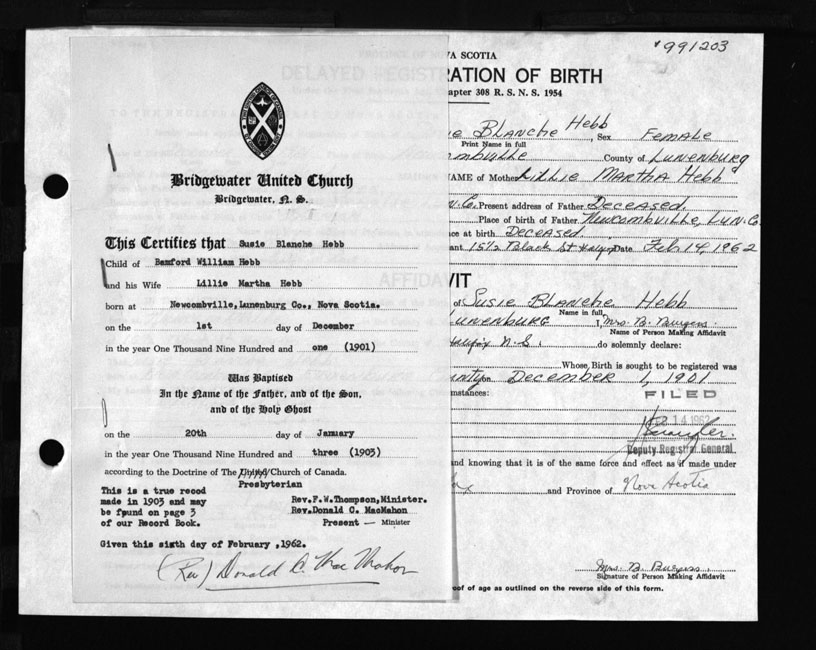 *991203
Bridgewater United Church
Bridgewater, N. S.
This Certifies that Susie Blanche Hebb
Child of Bamford William Hebb
and his Wife Lillie Martha Hebb
born at Newcombville, Lunenburg Co., Nova Scotia.
on the 1st day of December
in the year One Thousand Nine Hundred and one (1901)
Was Baptised
In the Name of the Father, and of the Son,
and of the Holy Ghost
on the 20th day of January
in the year One Thousand Nine Hundred and three (1903)
according to the Doctrine of The United Church of Canada.
Presbyterian
This is a true recod
made in 1903 and may
be found on page 3
of our Record Book.
Rev.F.W.Thompson,Minister.
Rev.Donald C. MacMahon
Present — Minister
Given this sixth day of February ,1962.
(Rev) Donald C. MacMahon
VA SCOTIA
RATION OF BIRTH
apter 308 R. S. N. S. 1954
ie Blanche Hebb, Sex Female
Print Name in full
ombville County of Lunenburg
NAME of Mother Lillie Martha Hebb
N.Co. Present address of Father Deceased
Place of birth of Father Newcombville, Lun. Co.
ce at birth Deceased
ant 151½ Black St Hfx Date Feb 14, 1962
VIT
of Susie Blanche Hebb
Name in full
Lunenburg I, Mrs. B. Burgess
Name of Person Making Affidavit
Halifax N.S. do solemnly declare:
Whose Birth is sought to be registered was
unty on December 1, 1901
mstances:
FILED
14 1962
Deputy Registrar General
and knowing that it is of the same force and effect as if made under
and Province of Nova Scotia
Mrs. B. Burgess
Signature of Person Making Affidavit
oof of age as outlined on the reverse side of this form.